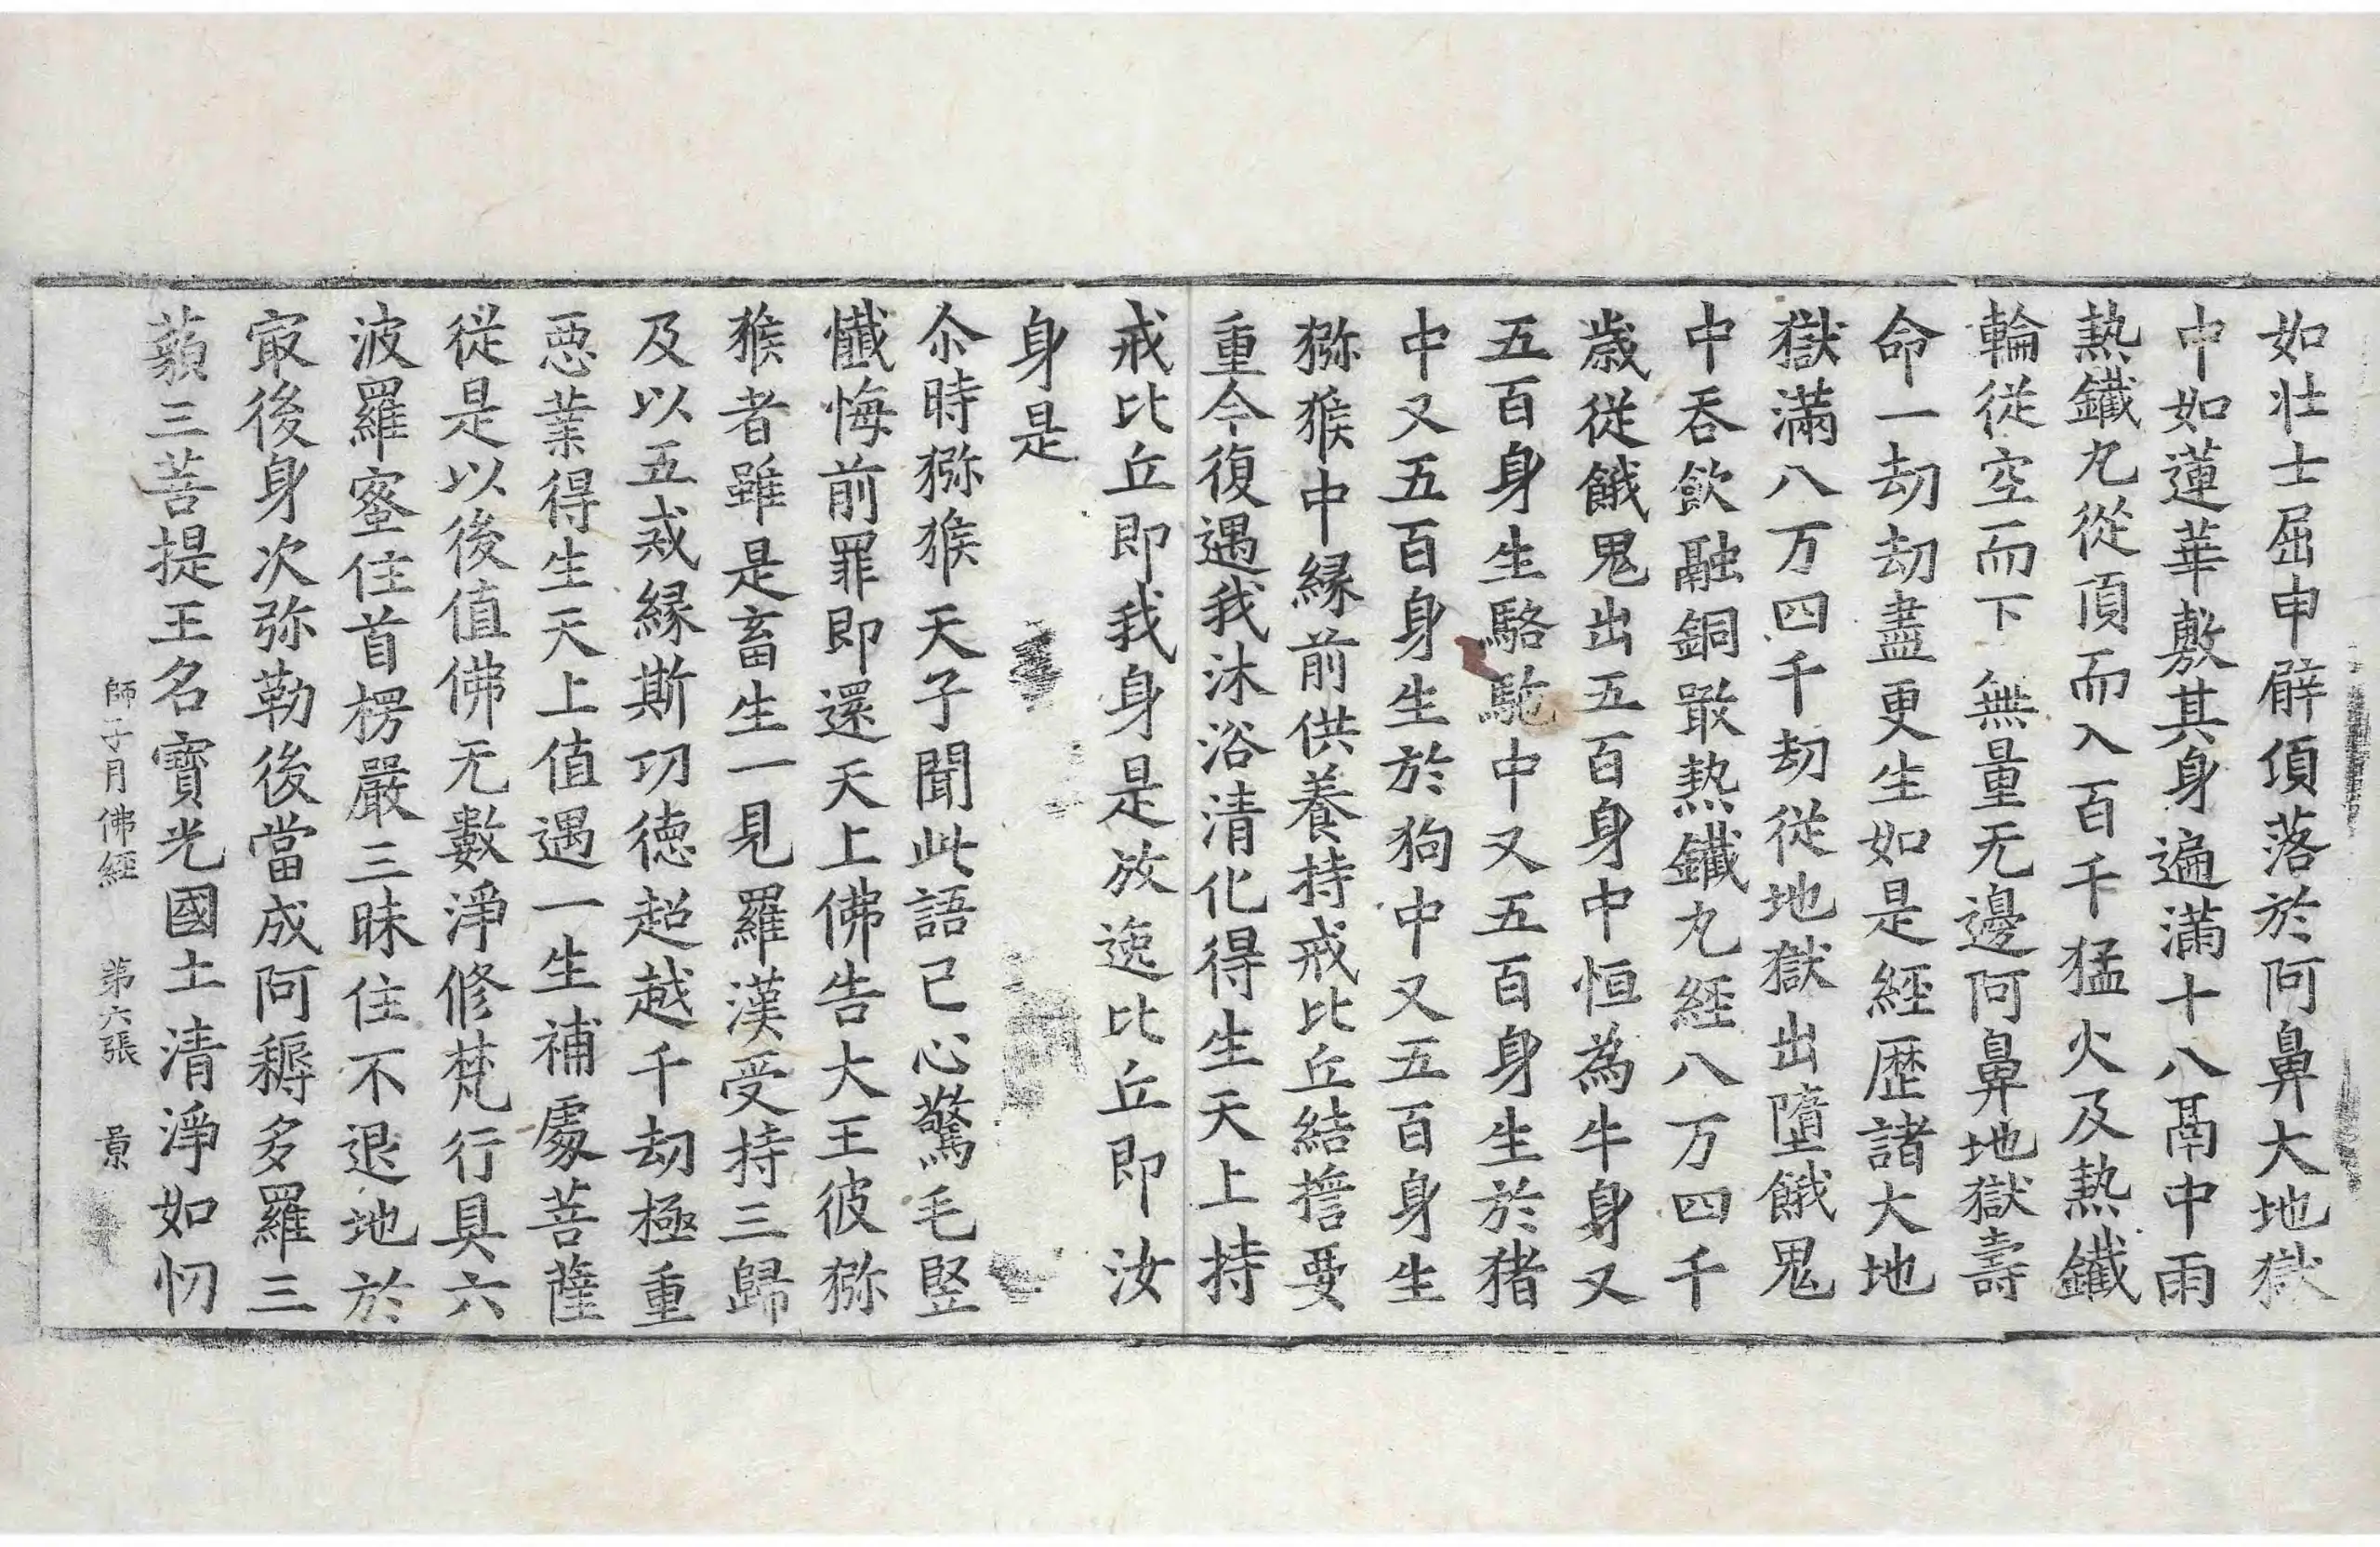 如壮士屈申臂頃落於阿鼻大地獄
中如蓮華敷其身遍滿十八鬲中雨
熱鐵丸從頂而入百千猛火及熱鐵
輪從空而下無量无邊阿鼻地獄壽
命一劫劫盡更生如是經歷諸大地
獄滿八万四千劫從地獄出墮餓鬼
中吞飲融銅噉熱鐵丸經八万四千
歲從餓鬼出五百身中恒為牛身又
五百身生駱駞中又五百身生於猪
中又五百身生於狗中又五百身生
獼猴中緣前供養持戒比丘結誓要
重今復遇我沐浴清化得生天上持
戒比丘即我身是放逸比丘即汝
身是
尒時獼猴天子聞此語已心驚毛竪
懺悔前罪即還天上佛告大王彼獼
猴者雖是畜生一見羅漢受持三歸
及以五戒緣斯功德超越千劫極重
惡業得生天上值遇一生補處菩薩
從是以後值佛无數淨修梵行具六
波羅蜜住首楞嚴三昧住不退地於
㝡後身次弥勒後當成阿耨多羅三
藐三菩提王名寶光國土清淨如忉
師子月佛經 第六張 景